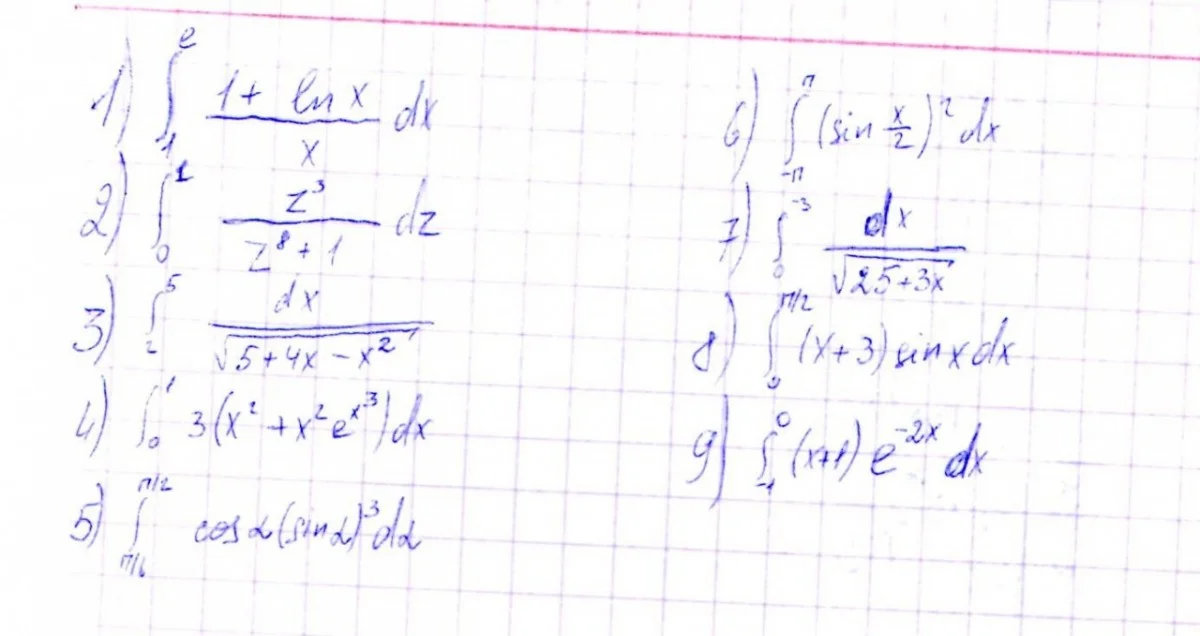 1) ∫₁ᵉ (1 + ln x)/x dx
2) ∫₀¹ z³/(z⁸ + 1) dz
3) ∫₂⁵ dx/√(5+4x−x²)
4) ∫₀¹ 3(x² + x²e^(x³)) dx
5) ∫_(π/6)^(π/2) cos α (sin α)³ dα
6) ∫_(-π)^π (sin x/2)² dx
7) ∫₀^(-3) dx/√(25+3x)
8) ∫₀^(π/2) (x+3) sin x dx
9) ∫_(-1)^0 (x+1) e^(-2x) dx